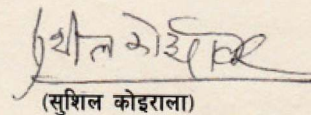 सुशील कोइराला
(सुशिल कोइराला)